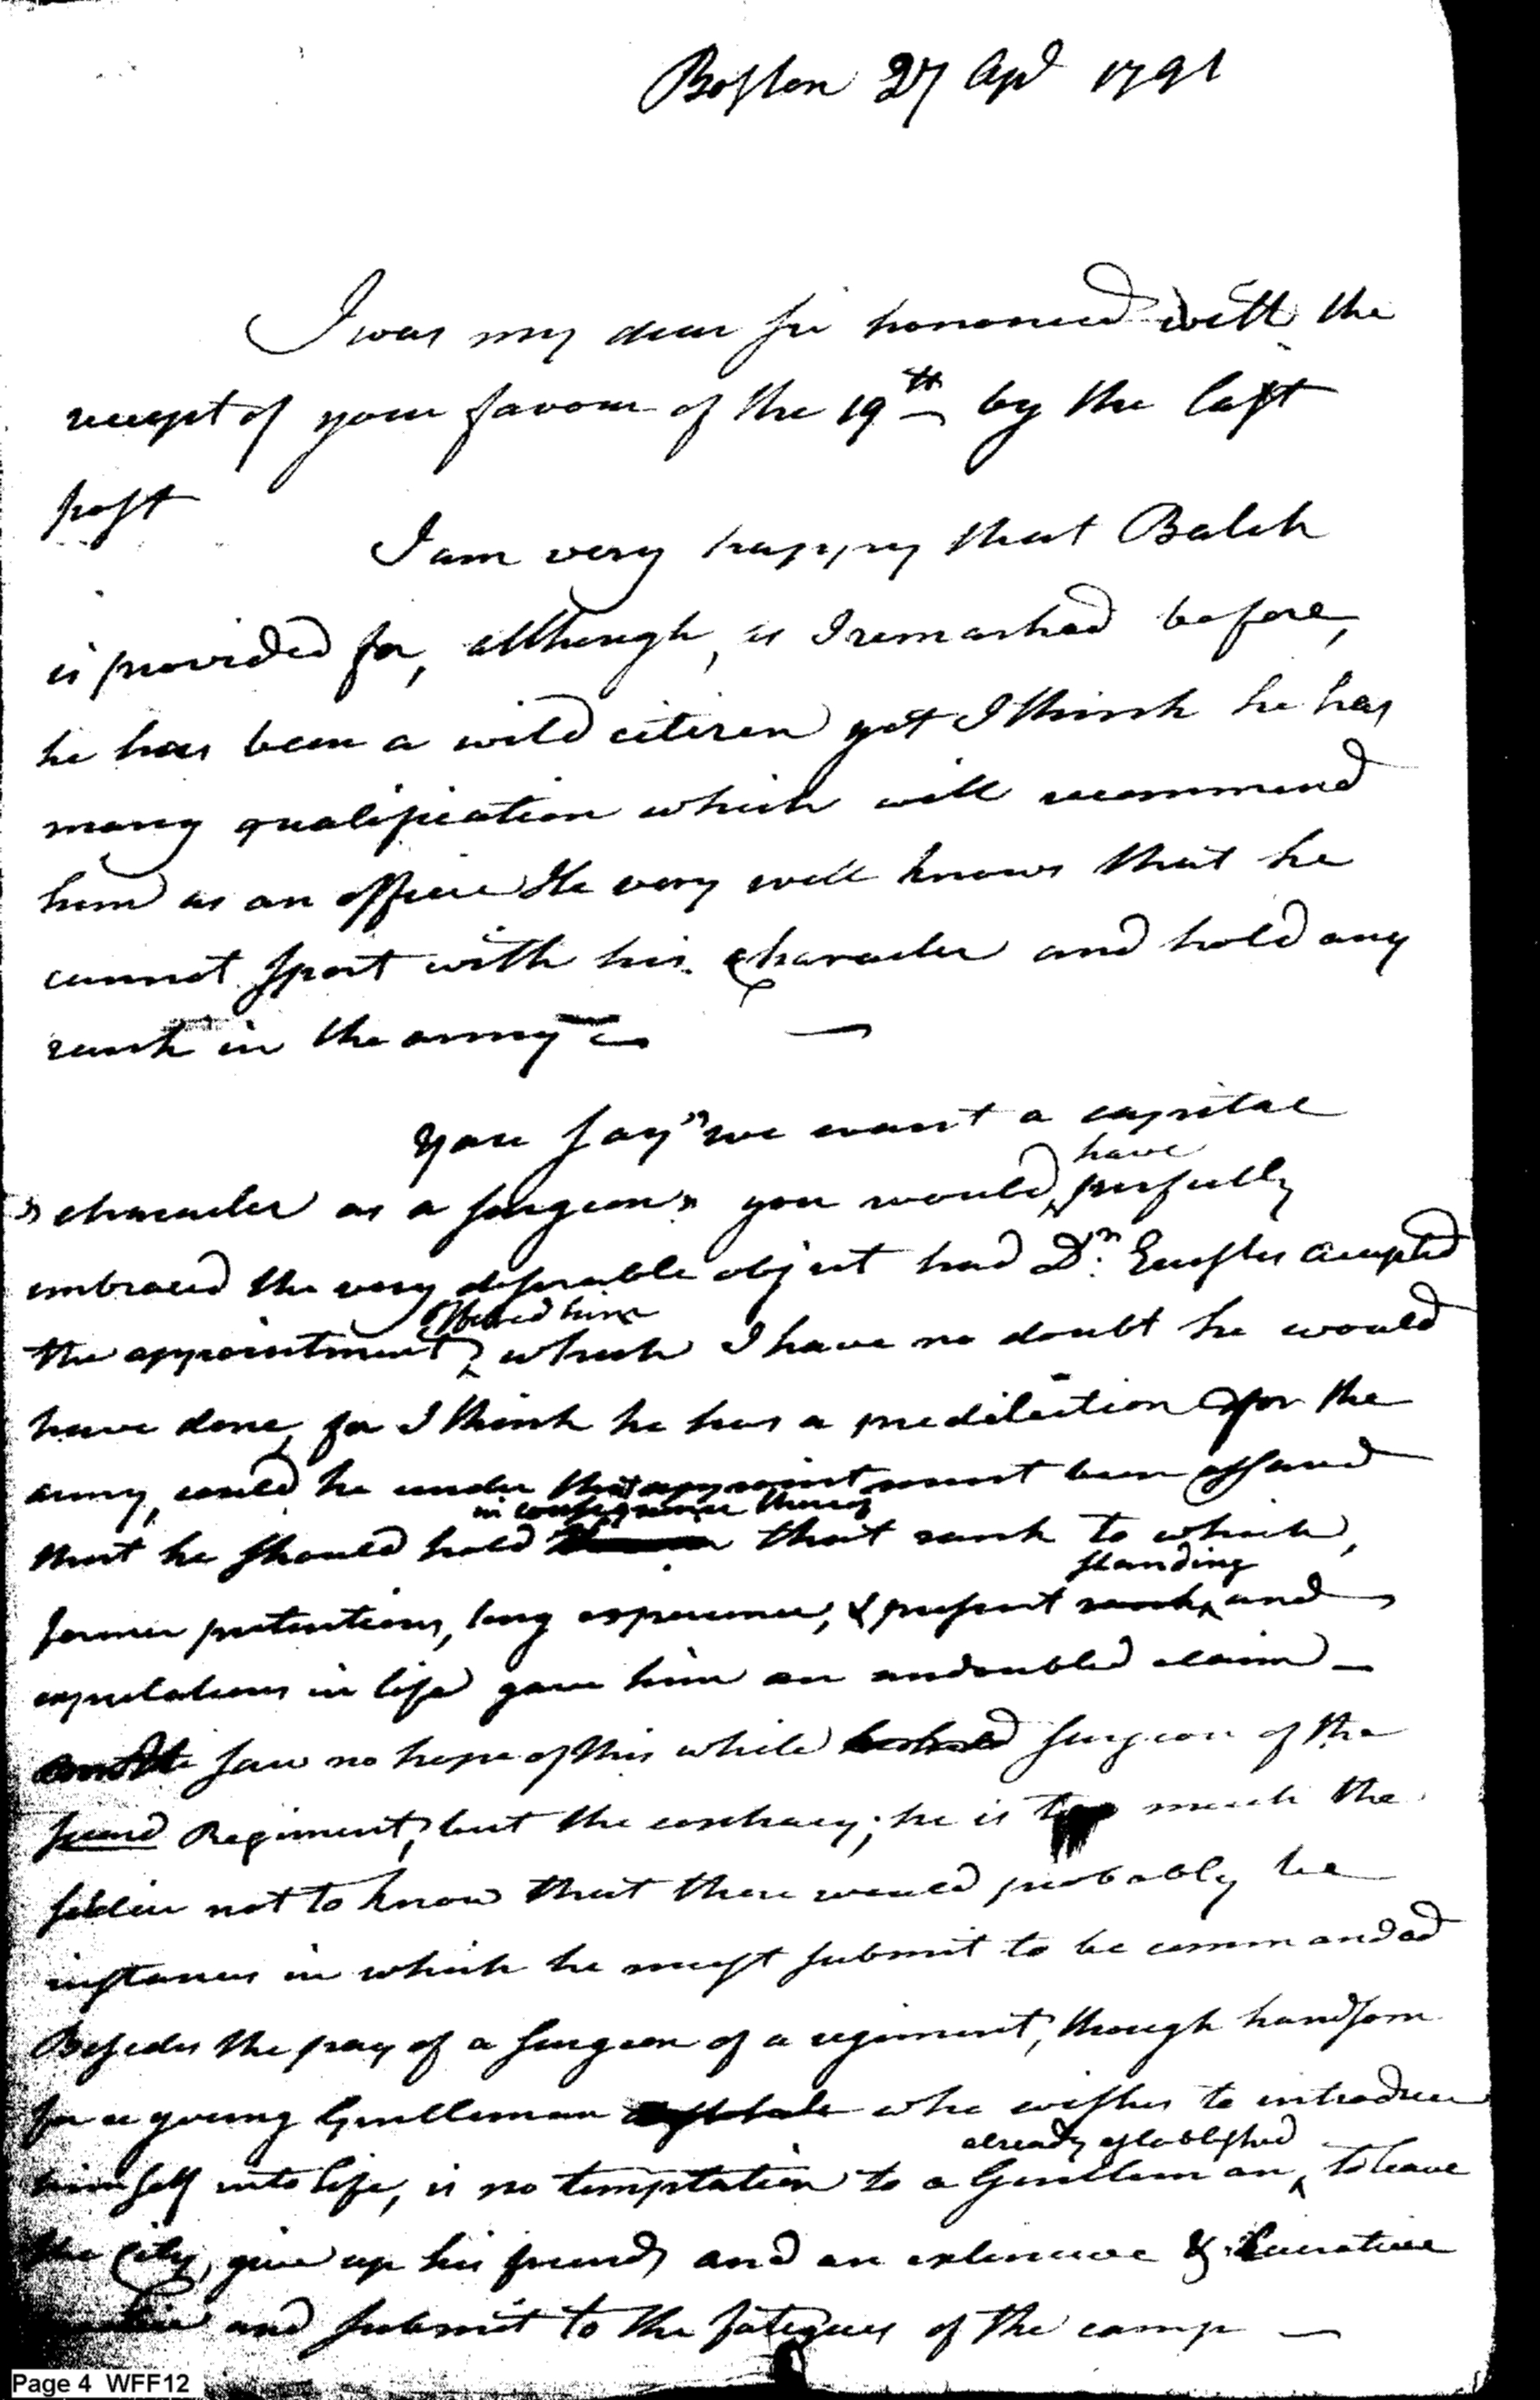 Boston 27 Apl 1791
I was my dear sir honoured with the
receipt of your favour of the 19th by the last
post
I am very happy that Balch
is provided for, although, as I remarked before,
he has been a wild citizen yet I think he has
many qualification which will recommend
him as an officer He very well knows that he
cannot sport with his character and hold any
rank in the army —
You say "we want a capital
have
"character as a surgeon" you would perfectly
embraced the very desirable object had Dr. Eustis accepted
offered him
the appointment, which I have no doubt he would
have done, for I think he has a predilection for the
army, could he under that appointment been assured
in consequence thereof
that he should hold that rank to which,
standing
former pretentions, long experience, & present rank and
expectations in life gave him an undoubted claim —
He saw no hope of this while surgeon of the
second Regiment, but the contrary; he is too much the
soldier not to know that there would probably be
instances in which he must submit to be commanded
Besides the pay of a surgeon of a regiment, though handsom
for a young Gentleman who wishes to introduce
already established
himself into life, is no temptation to a Gentleman, to leave
the City, give up his friends and an extensive & lucrative
and submit to the fatigues of the camp —
Page 4 WFF12